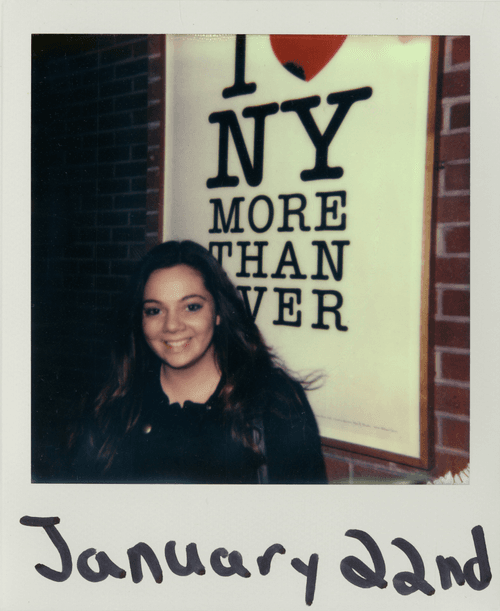 I
NY
MORE
THAN
VER
January 22nd